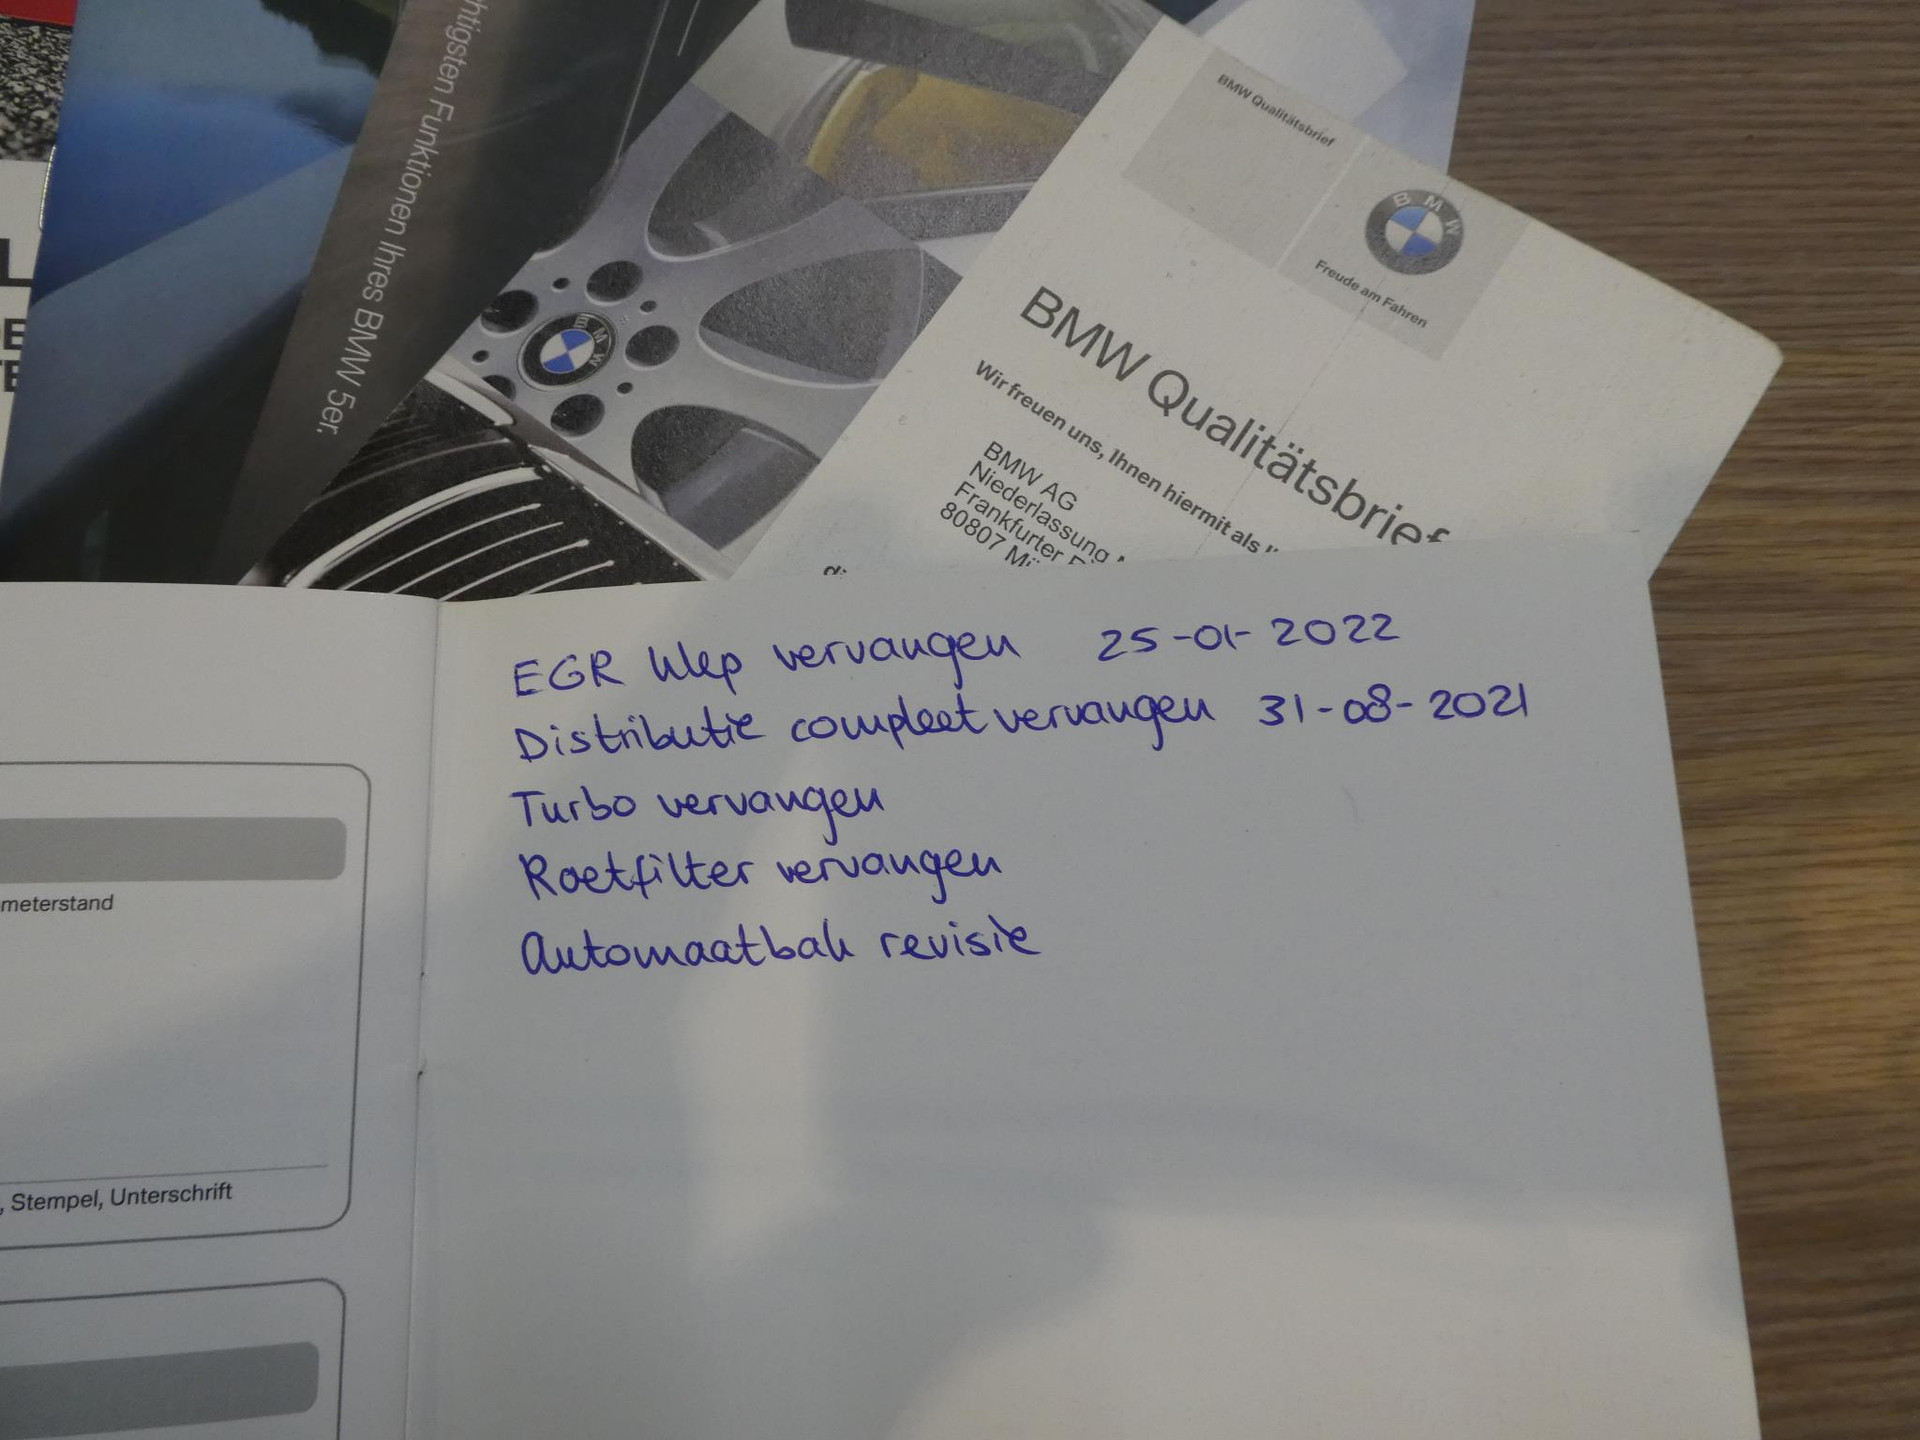 BMW Qualitätsbrief
BMW
Freude am Fahren
BMW Qualitätsbrief
Wir freuen uns, Ihnen hiermit als
BMW AG
Niederlassung
Frankfurter
80807
htigsten Funktionen Ihres BMW 5er.
BMW
EGR klep vervangen 25-01-2022
Distributie compleet vervangen 31-08-2021
Turbo vervangen
Roetfilter vervangen
Automaatbak revisie
meterstand
, Stempel, Unterschrift